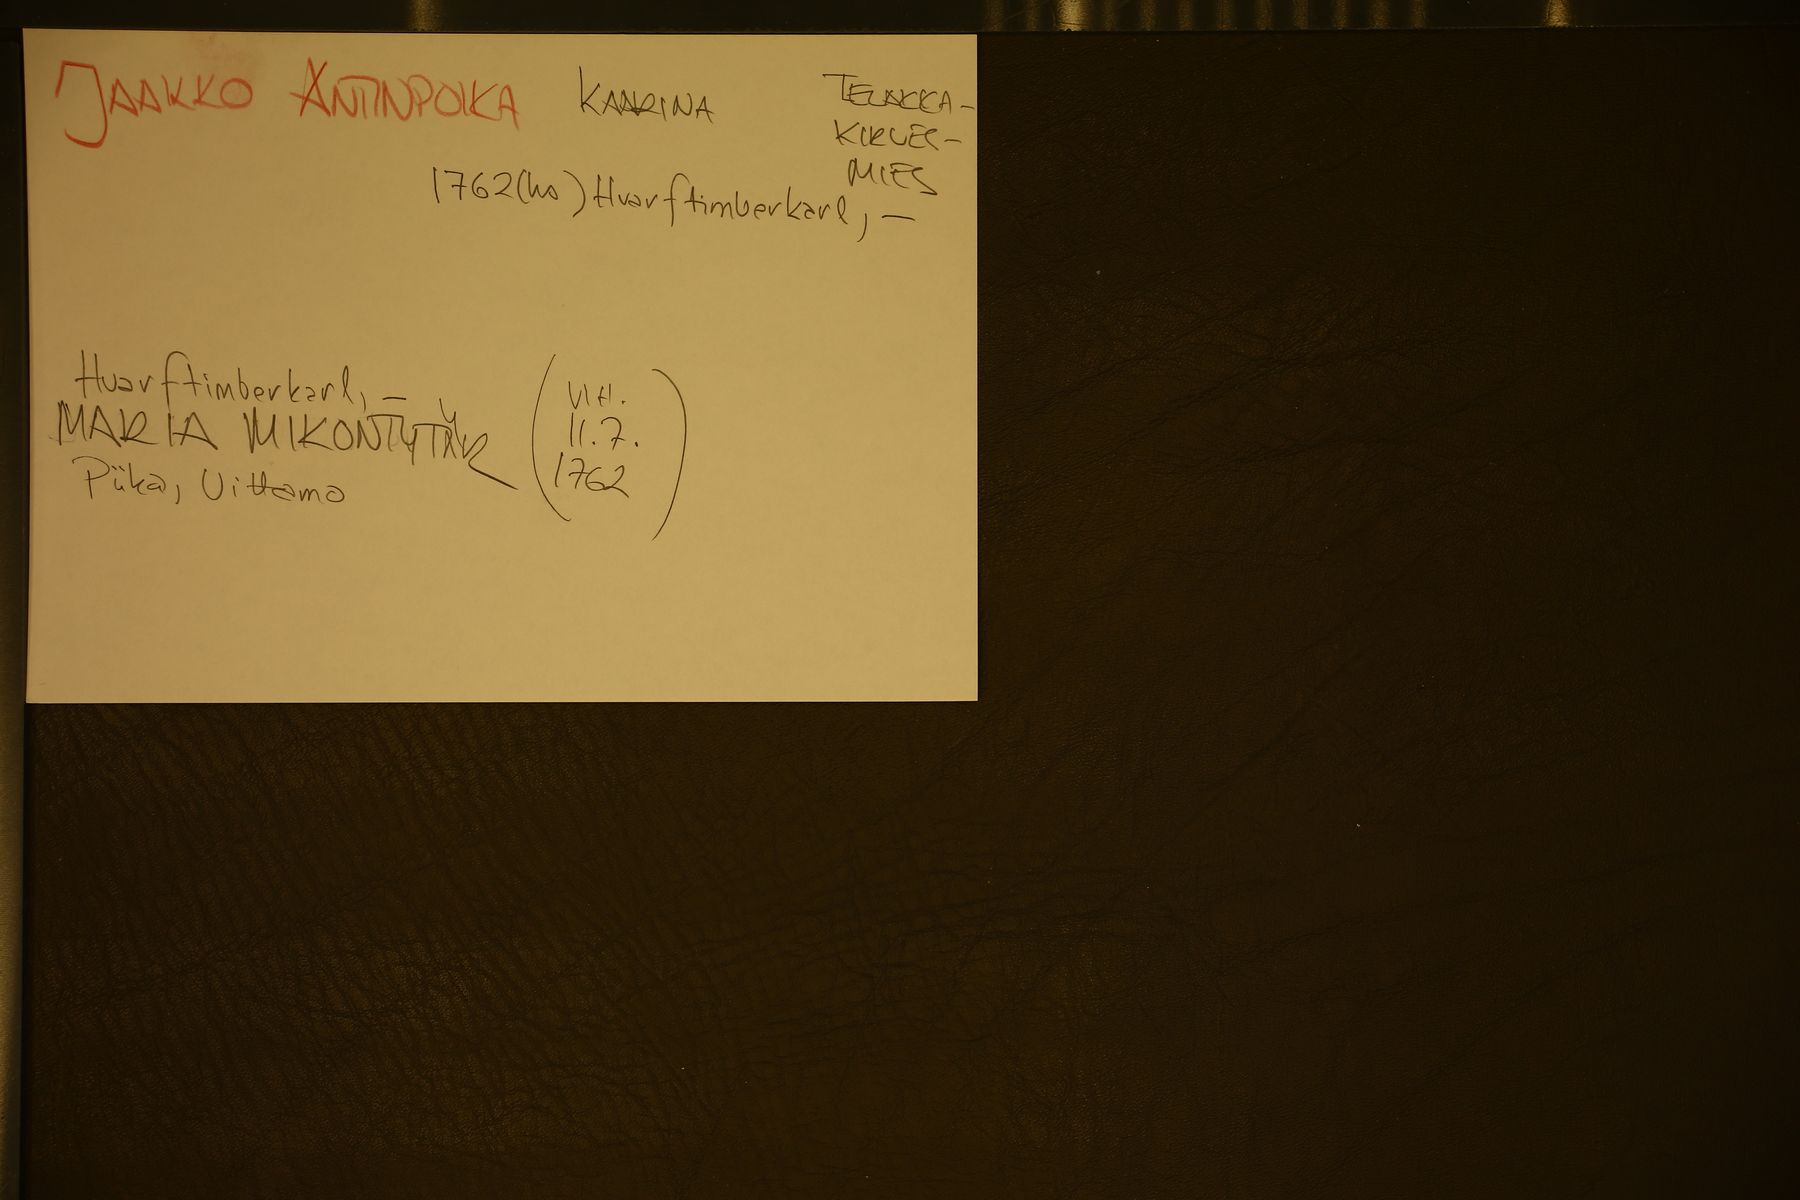 JAAKKO ANTINPOIKA KAARINA TELAKKA-
KIRVES-
MIES
1762 (ho) Hvarftimberkarl, —
Hvarftimberkarl, —
MARIA MIKONTYTÄR
Piika, Uittamo
(VIH.
11.7.
1762)